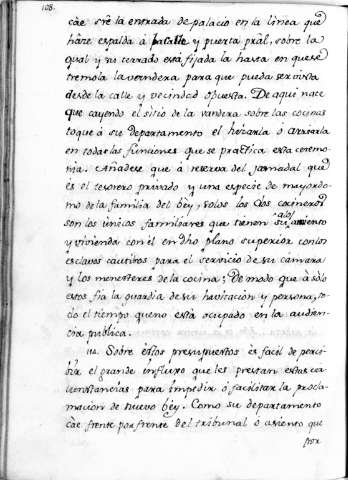 108.
cáe s̃re la entrada de palacio en la linea que
háce espalda á la Calle y puerta pral, sobre la
qual y su terrado está fijada la hasta en que se
tremola la vandera para que pueda ser vista
desde la calle y vecindad opuesta. De aqui nace
que cayendo el sitio de la vandera sobre las cocinas
toque á su departamento el hizarla ó arrearla
en todas las funciones que se practica esta ceremo-
nia. Añadese que á reserva del jasnadal que
és el tesorero privado y una especie de mayordo-
mo de la familia del bey, solos los dos cocineros
son los unicos familiares que tienen su aloj
amiento
y vivienda con él en dho plano superior con los
esclavos cautivos para el servicio de su camara
y los menesteres de la cocina; De modo que á solo
estos fia la guardia de su havitación y persona, to-
do el tiempo que no está ocupado en la audien-
cia publica.
112. Sobre éstos presupuestos es facil de perci-
bir el grande influxo que les prestan estas cir-
cunstancias para impedir ó facilitar la procla-
macion de nuevo bey. Como su departamento
cáe frente por frente del tribunal ó asiento que
por